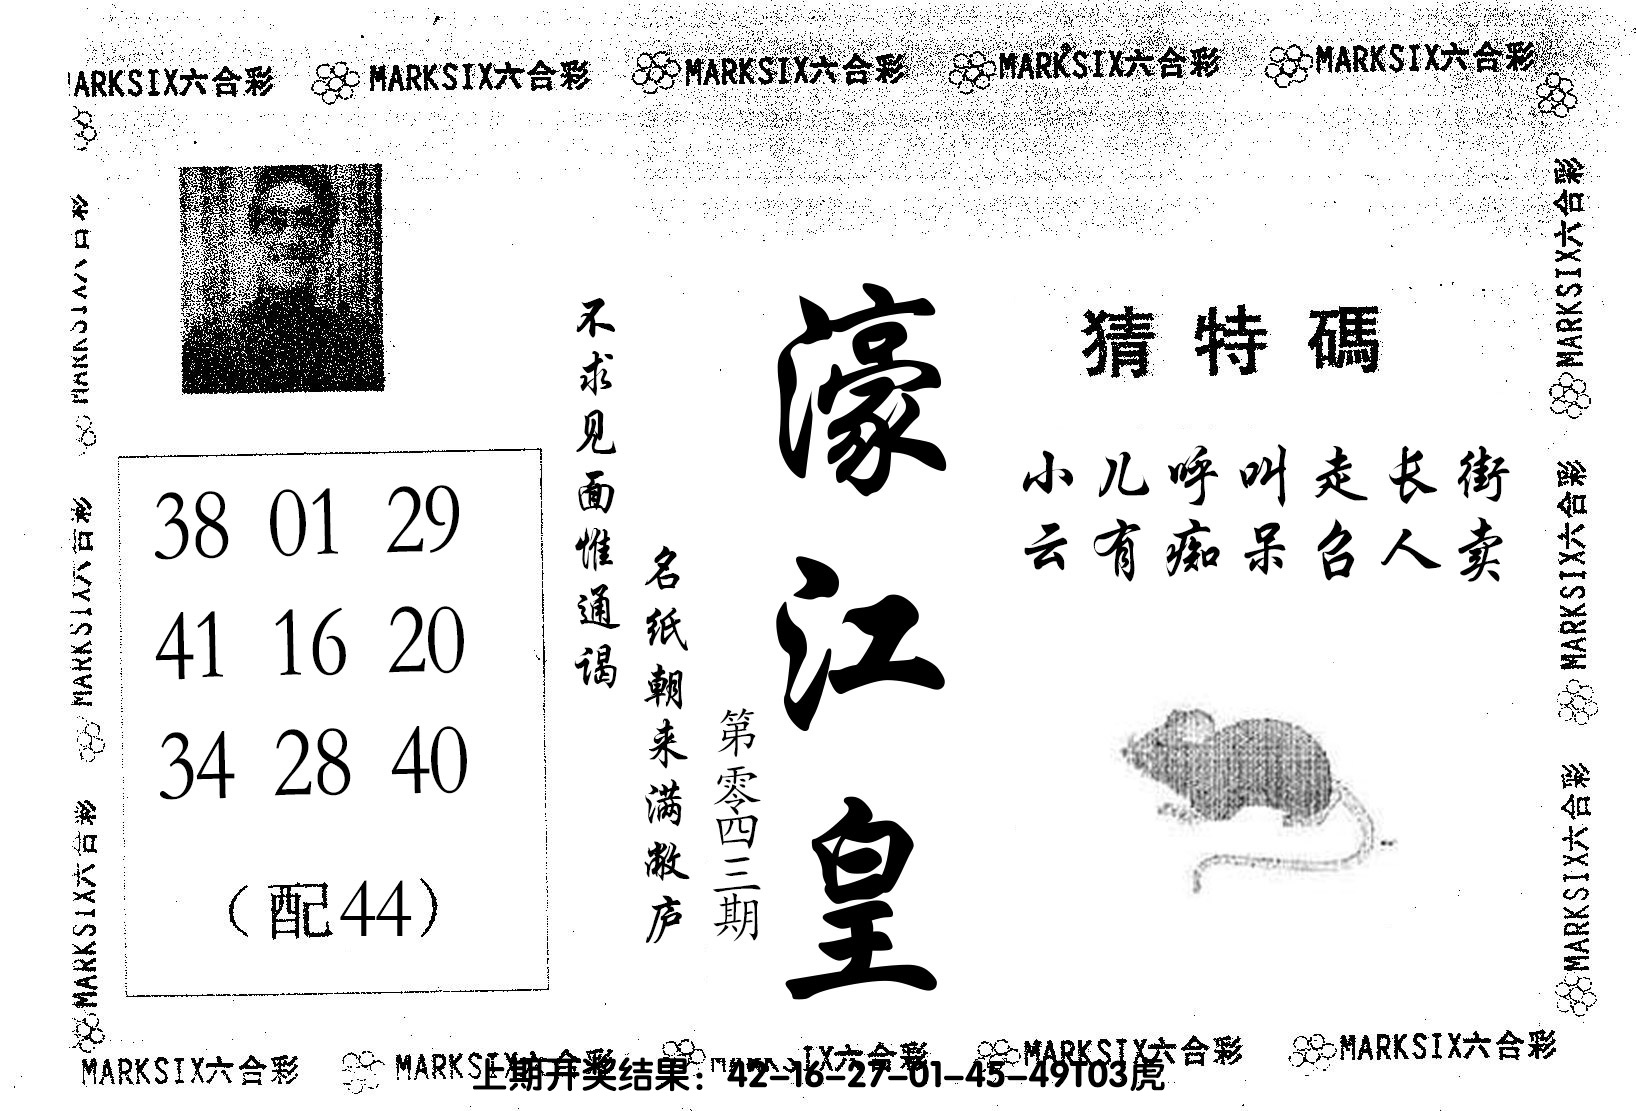 MARKSIX六合彩 MARKSIX六合彩 MARKSIX六合彩 MARKSIX六合彩 MARKSIX六合彩
猜特碼
小儿呼叫走长街
云有痴呆召人卖
濠江皇
第零四三期
不求见面惟通谒
名纸朝来满敝庐
38 01 29
41 16 20
34 28 40
（配44）
MARKSIX六合彩
MARKSIX六合彩
MARKSIX六合彩
MARKSIX六合彩
MARKSIX六合彩
MARKSIX六合彩
MARKSIX六合彩 MARKSIX六合彩 MARKSIX六合彩 MARKSIX六合彩 MARKSIX六合彩
上期开奖结果：42-16-27-01-45-49T03虎